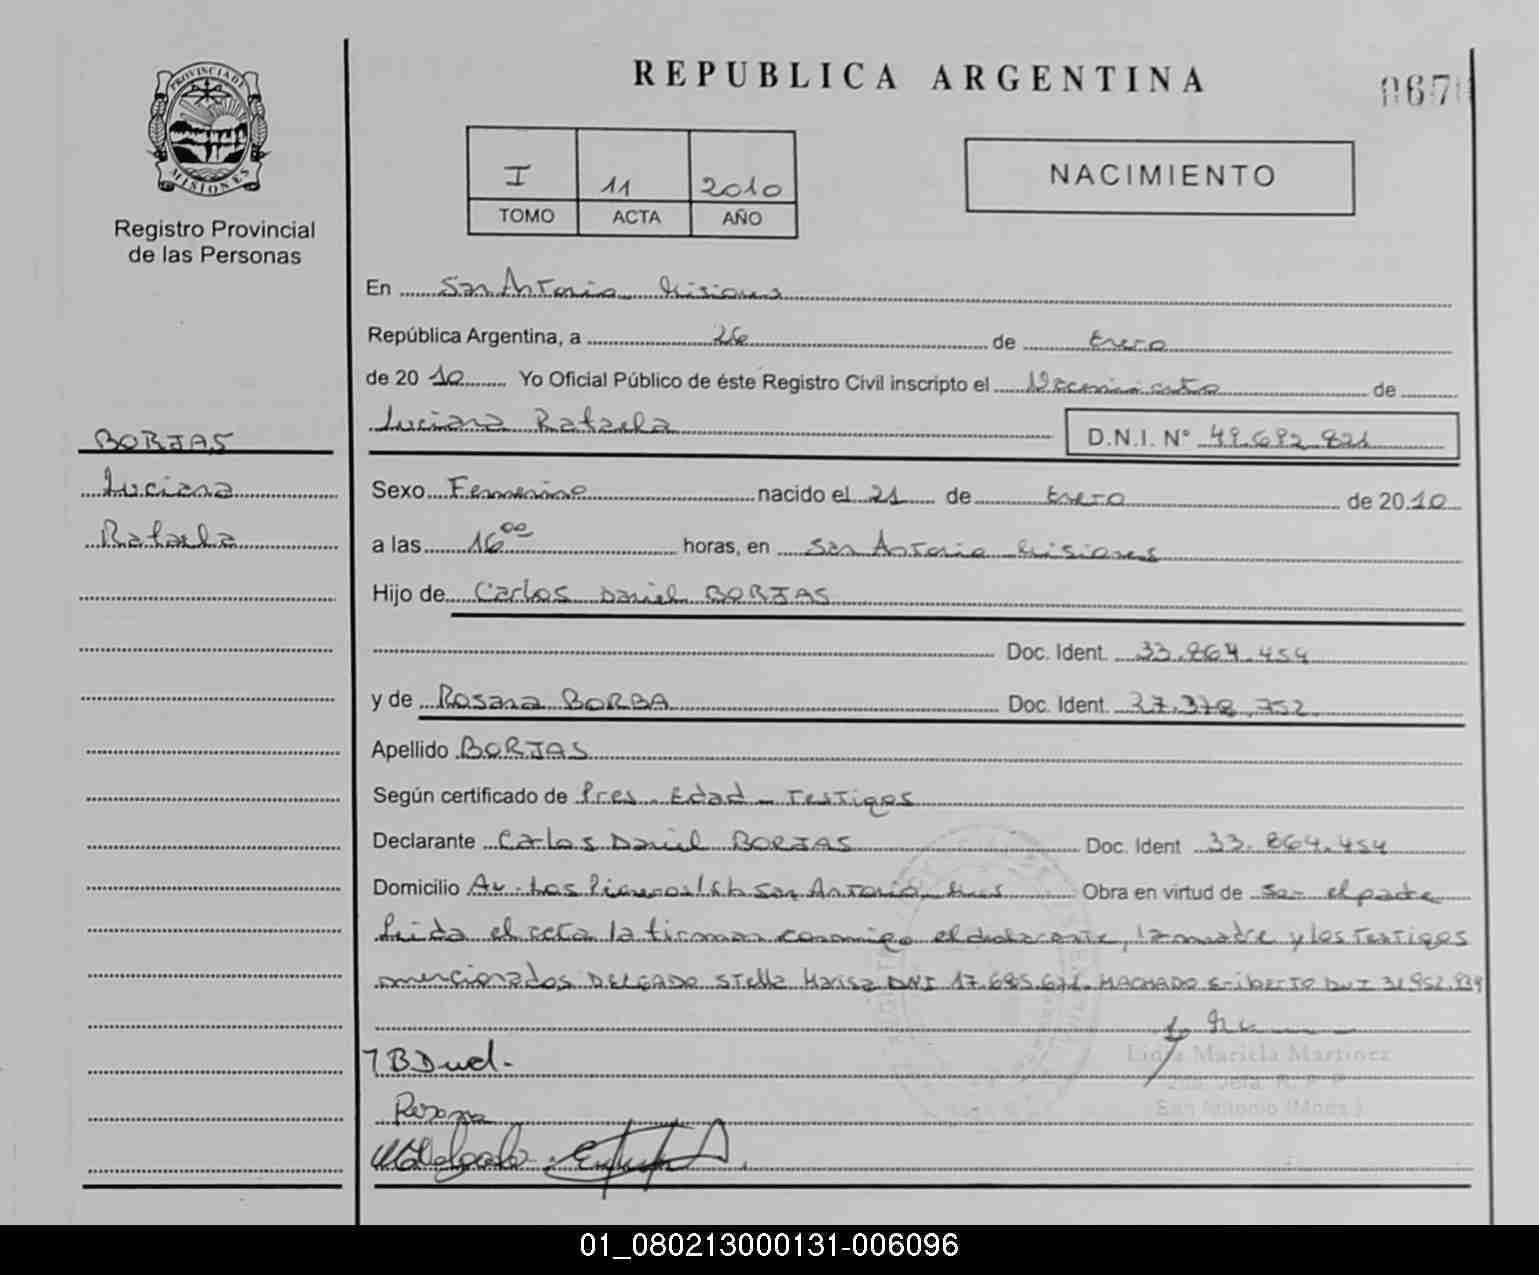 REPUBLICA ARGENTINA
067
PROVINCIA DE
MISIONES
Registro Provincial
de las Personas
I 11 2010
TOMO ACTA AÑO
NACIMIENTO
En San Antonio Misiones
República Argentina, a 26 de Enero
de 20 10 Yo Oficial Público de éste Registro Civil inscripto el Nacimiento de
Luciana Rafaela D.N.I. N° 49.692.821
BORJAS
Luciana
Rafaela
Sexo Femenino nacido el 21 de Enero de 20 10
a las 16 00 horas, en San Antonio Misiones
Hijo de Carlos Daniel BORJAS
Doc. Ident. 33.864.454
y de Rosana BORBA Doc. Ident. 37.378.752
Apellido BORJAS
Según certificado de Pres. Edad - Testigos
Declarante Carlos Daniel BORJAS Doc. Ident 33.864.454
Domicilio Av. Los Pioneros S/N San Antonio Mnes Obra en virtud de ser el padre
Leida el acta la firman conmigo el declarante, la madre y los Testigos
mencionados DELGADO Stella Marisa DNI 17.685.671. MACHADO Eriberto DNI 31.952.839
Lidia Mariela Martinez
San Antonio (Mnes.)
Rosana
01_080213000131-006096